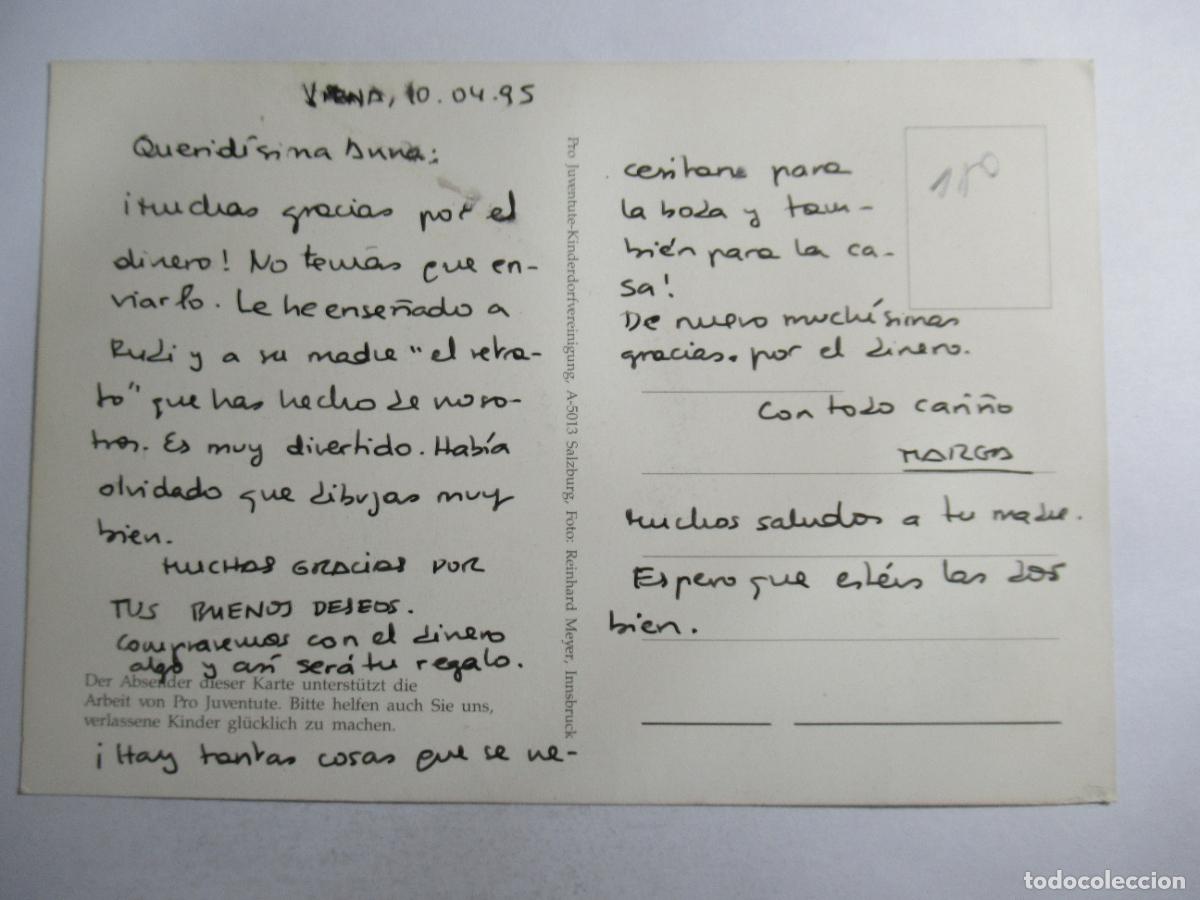 VIENA, 10.04.95
Queridísima Anna:
¡Muchas gracias por el
dinero! No temás que en-
viarlo. Le he enseñado a
Rudi y a su madre "el retra-
to" que has hecho de noso-
tros. Es muy divertido. Había
olvidado que dibujas muy
bien.
MUCHAS GRACIAS POR
TUS BUENOS DESEOS.
Compraremos con el dinero
algo y así será tu regalo.
Der Absender dieser Karte unterstützt die
Arbeit von Pro Juventute. Bitte helfen auch Sie uns,
verlassene Kinder glücklich zu machen.
¡Hay tantas cosas que se ne-
Pro Juventute-Kinderdorfvereinigung, A-5013 Salzburg, Foto: Reinhard Meyer, Innsbruck
cesitan para
la boda y tam-
bién para la ca-
sa!
De nuevo muchísimas
gracias por el dinero.
Con todo cariño
MARGA
Muchos saludos a tu madre.
Espero que estéis las dos
bien.
180
todocoleccion